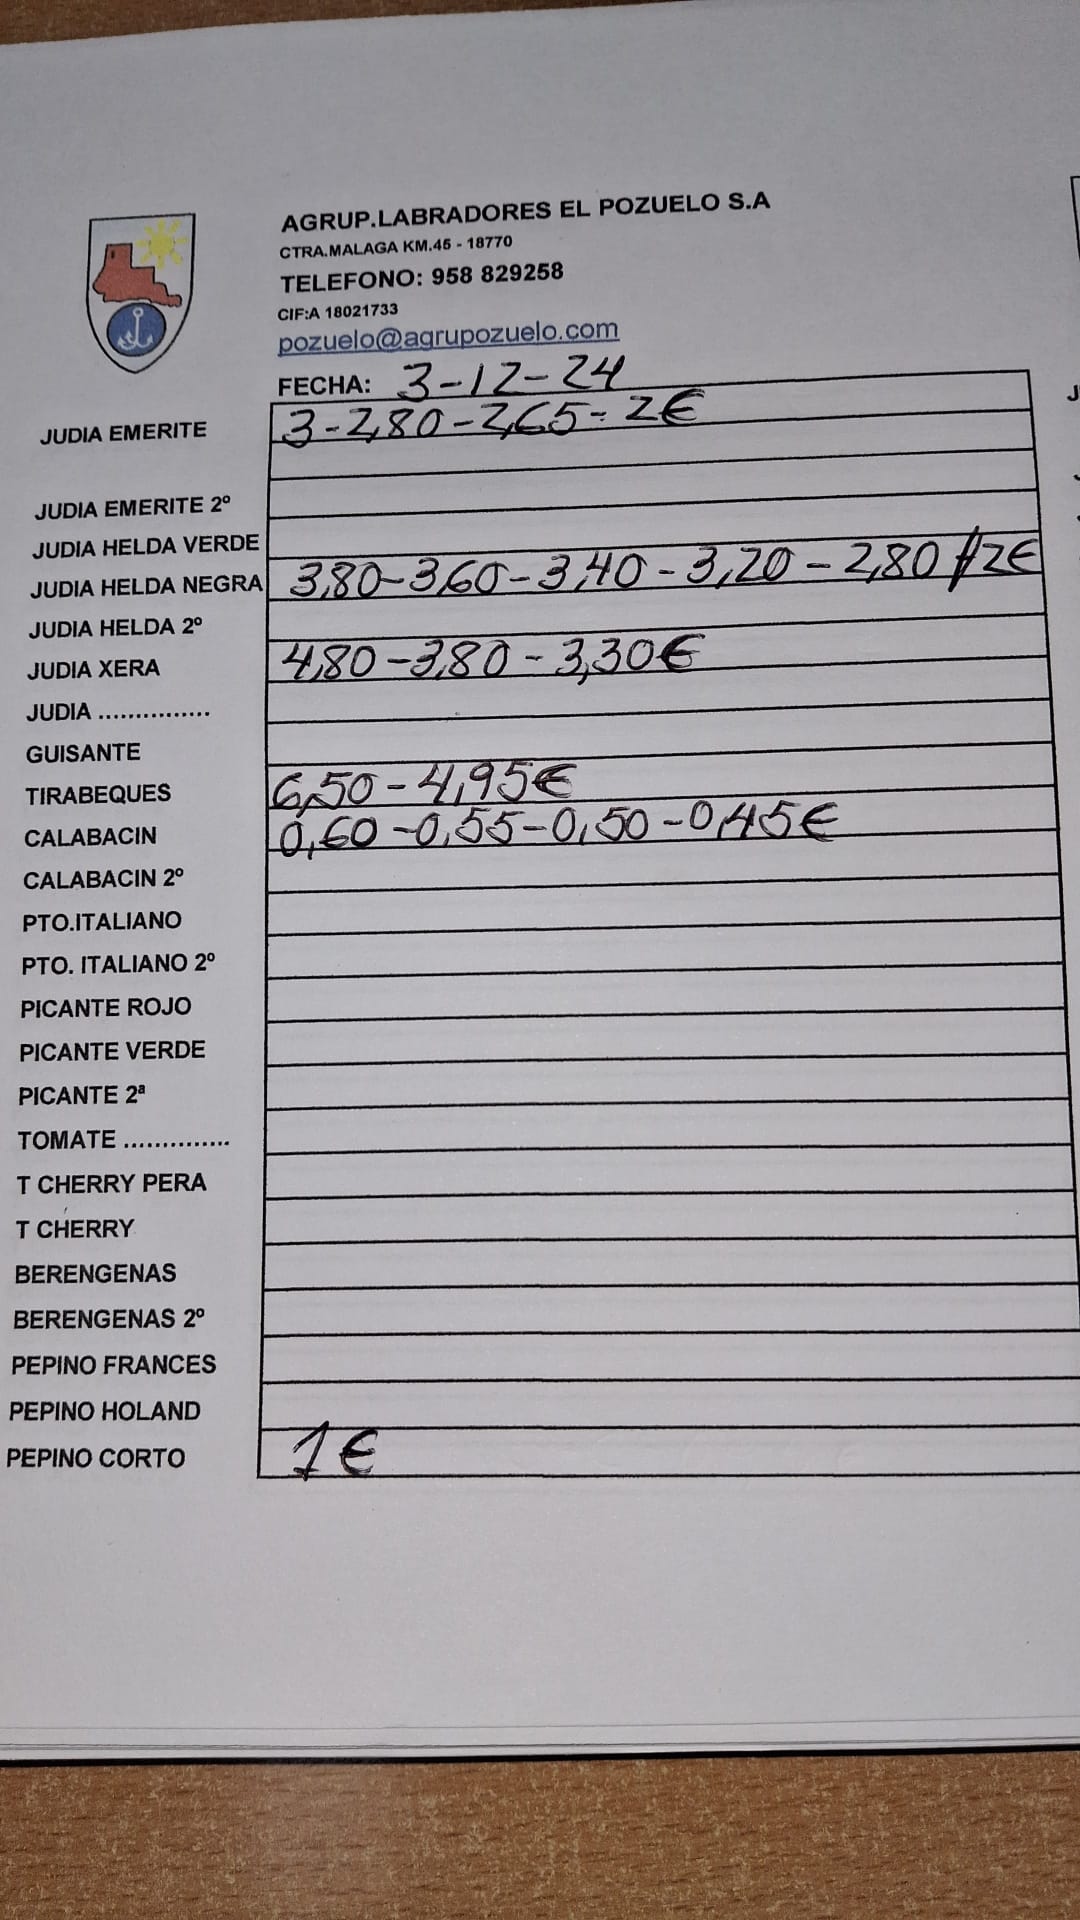 AGRUP.LABRADORES EL POZUELO S.A
CTRA.MALAGA KM.45 - 18770
TELEFONO: 958 829258
CIF:A 18021733
pozuelo@agrupozuelo.com
FECHA: 3-12-24
JUDIA EMERITE 3-2,80-2,65-2€
JUDIA EMERITE 2º
JUDIA HELDA VERDE
JUDIA HELDA NEGRA 3,80-3,60-3,40-3,20-2,80 // 2€
JUDIA HELDA 2º
JUDIA XERA 4,80-3,80-3,30€
JUDIA ...............
GUISANTE
TIRABEQUES 6,50-4,95€
CALABACIN 0,60-0,55-0,50-0,45€
CALABACIN 2º
PTO.ITALIANO
PTO. ITALIANO 2º
PICANTE ROJO
PICANTE VERDE
PICANTE 2ª
TOMATE ..............
T CHERRY PERA
T CHERRY
BERENGENAS
BERENGENAS 2º
PEPINO FRANCES
PEPINO HOLAND
PEPINO CORTO 1€